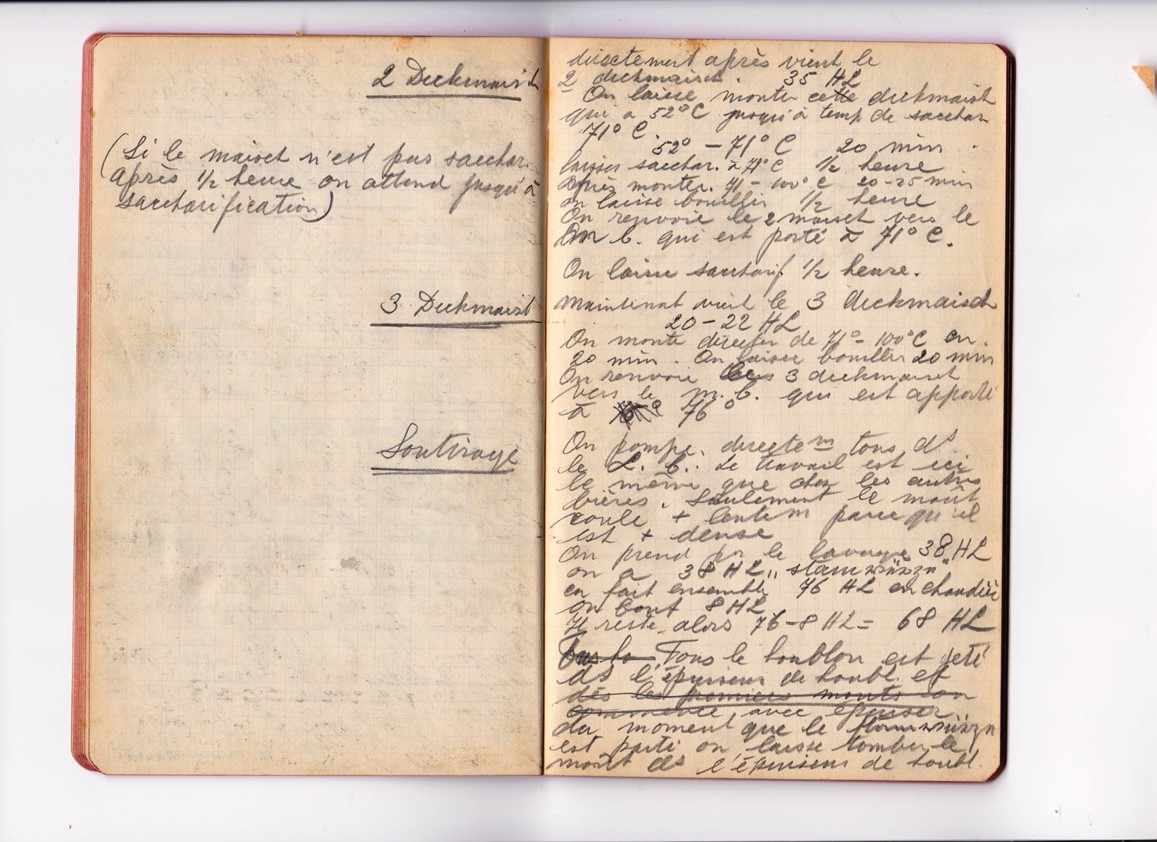 2 Dickmaisch
(Si le maisch n'est pas sacchar.
après 1/2 heure on attend jusqu'à
saccharification)
3 Dickmaisch
Soutirage
directement après vient le
2 dickmaisch. 35 HL
On laisse monter cette dickmaisch
qui a 52°C jusqu'à temp de sacchar
71° C.
52° – 71° C 20 min.
laisser sacchar. à 71°C 1/2 heure
Après monter. 71 – 100° C 20-25 min
on laisse bouillir 1/2 heure
On renvoie le 2 maisch vers le
m b. qui est porté à 71° C.
On laisse saccharif 1/2 heure.
Maintenat vient le 3 dickmaisch
20 – 22 HL
On monte directem de 71° – 100°C en.
20 min. On laisse bouillir 20 min
On renvoie 3 dickmaisch
vers le m. b. qui est apporté
à 76°
On pompe. directem tous ds
le L. b.. Le travail est ici
le même que chez les autres
bières. Seulement le moût
coule + lentem parce qu'il
est + dense
On prend pr le lavage 38 HL
on a 38 HL „stamwürzn"
en fait ensemble 76 HL en chaudière
on bout 8 HL
Il reste alors 76 – 8 HL = 68 HL
Tous le houblon est jeté
ds l'épuiseur de houbl. et
dès les premiers mouts on
commence avec épuiser
du moment que le stamwürzn
est parti on laisse tomber le
moût ds l'épuiseur de houbl.